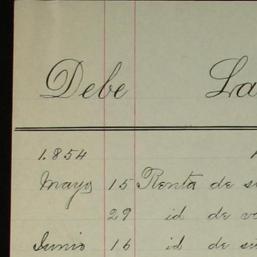 Debe La
1.854
Mayo 15 Renta de su
29 id de
Junio 16 id de su